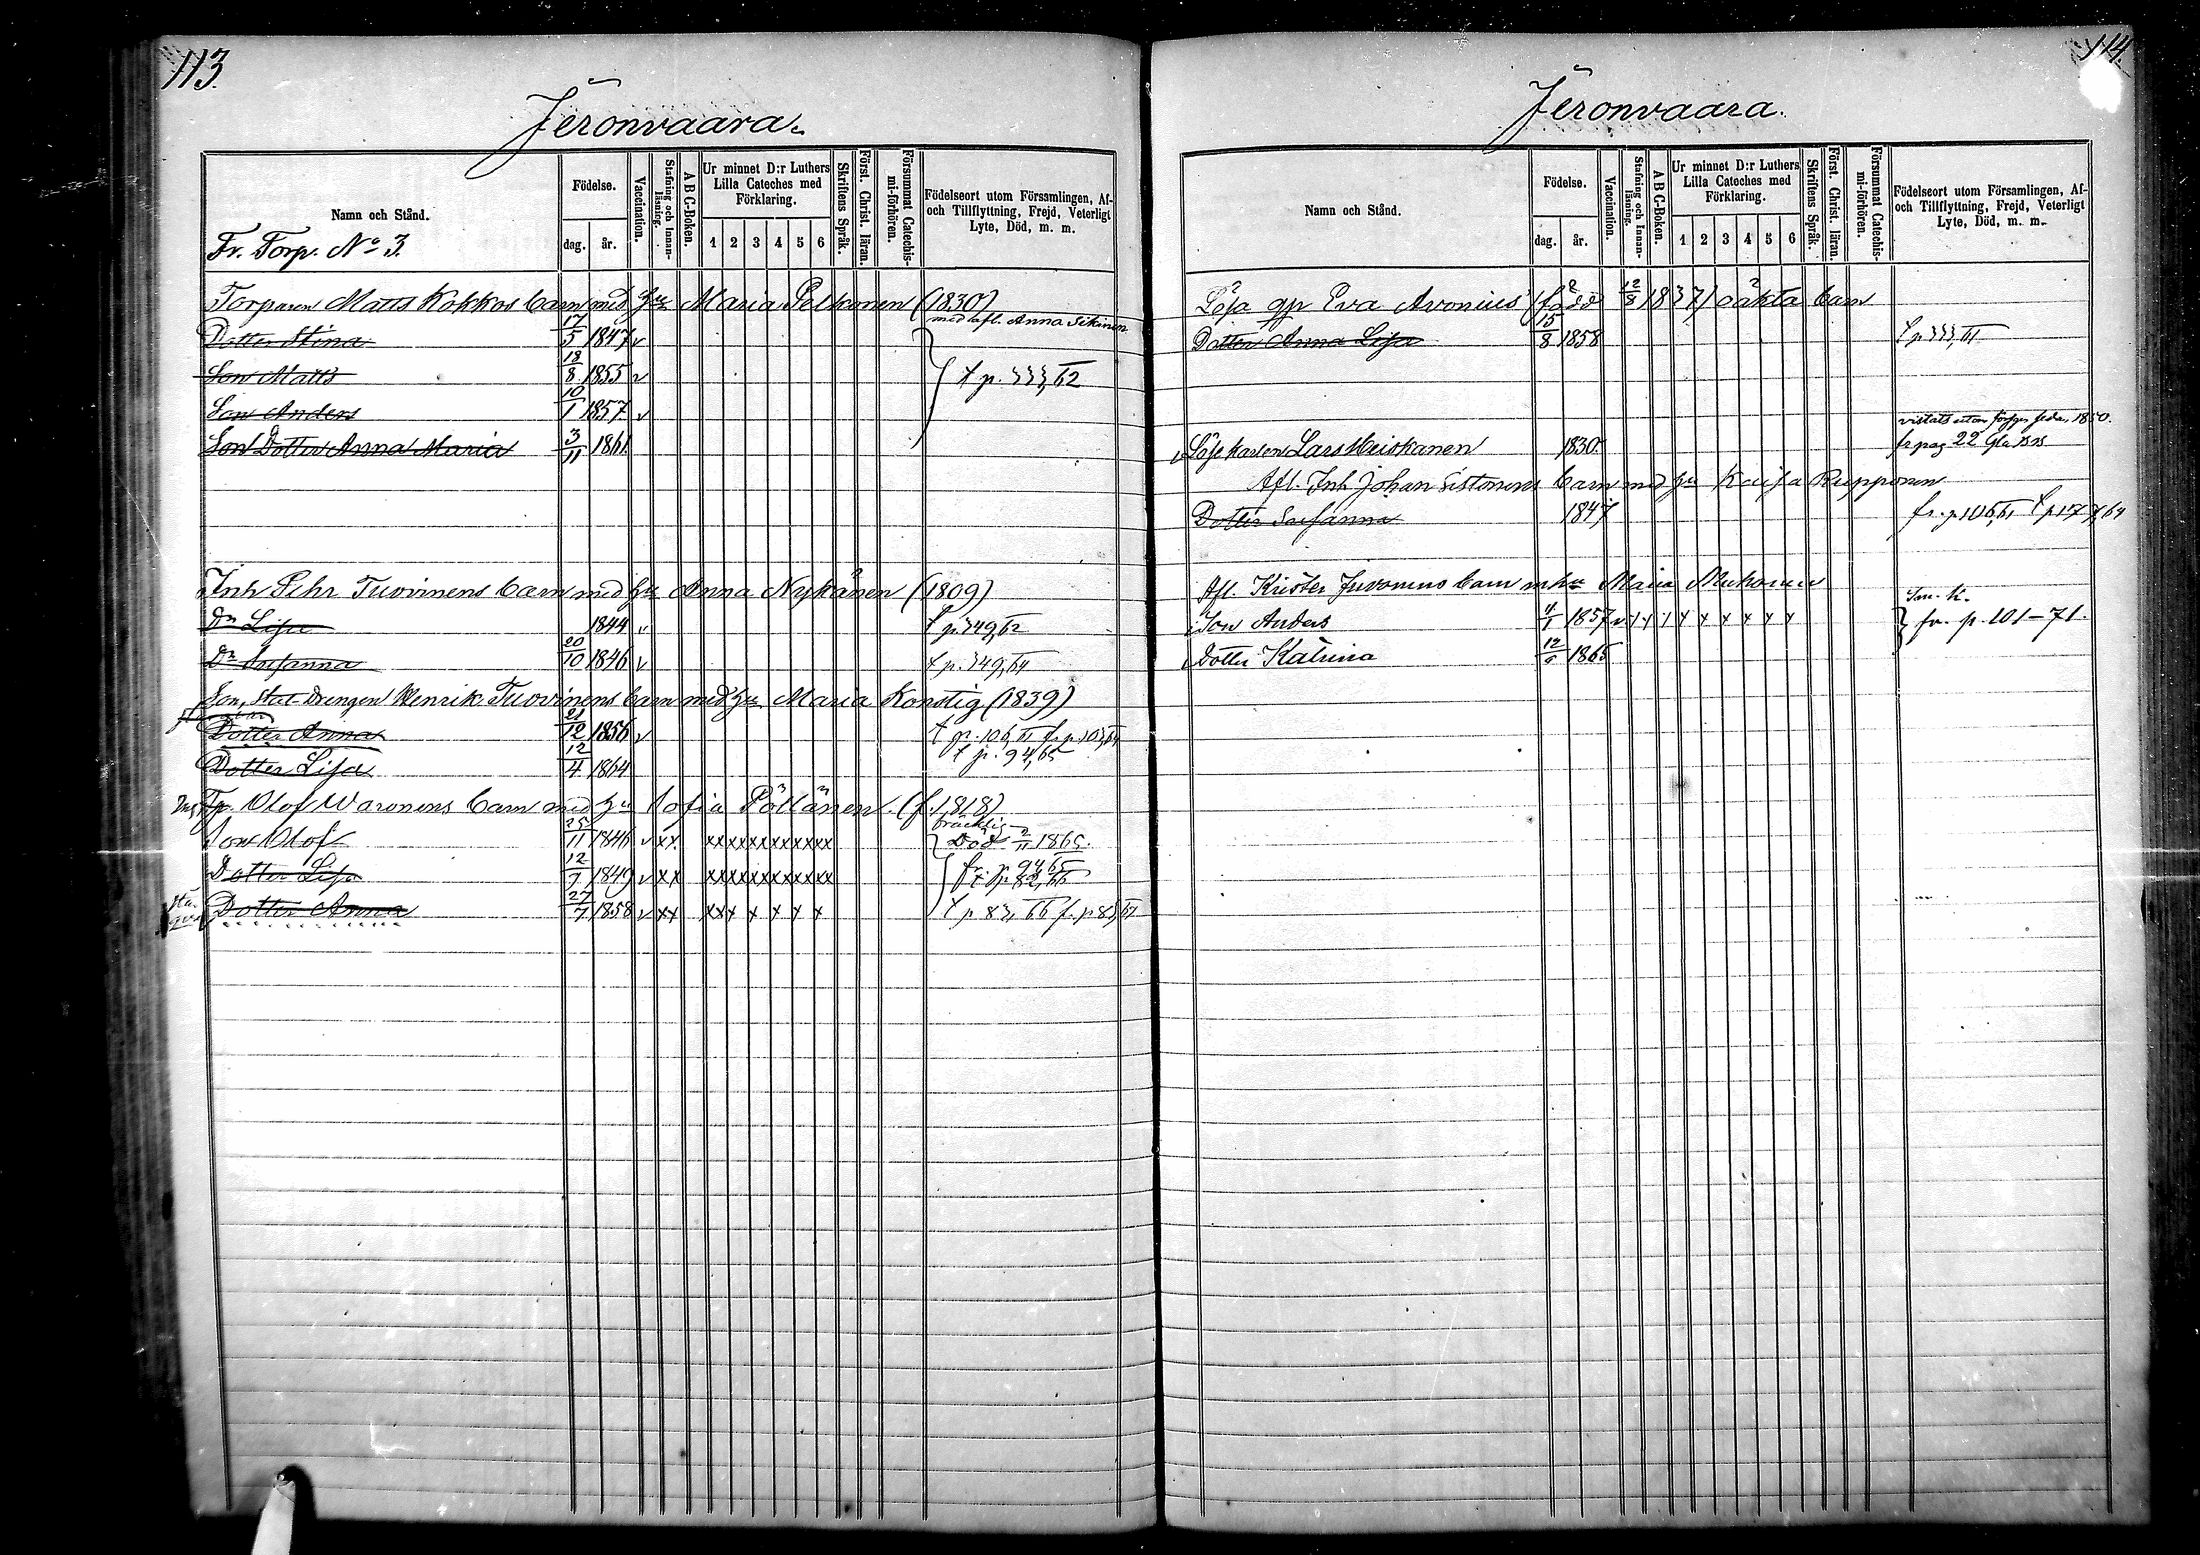 113.
Jeronvaara.
Namn och Stånd.
Fr. Torp. No 3.
Födelse.
dag. år.
Vaccination.
Stafning och Innanläsning.
A B C-Boken.
Ur minnet D:r Luthers Lilla Cateches med Förklaring.
1 2 3 4 5 6
Skriftens Språk.
Först. Christ. läran.
Försummat Catechismi-förhören.
Födelseort utom Församlingen, Af- och Tillflyttning, Frejd, Veterligt Lyte, Död, m. m.
Torparen Matts Kokkos barn med hu Maria Pelkonen (1830)
med afl. Anna Sikanen
Dotter Stina 17/5 1847 v
Son Matts 18/8 1855 v t p. 333, 62
Son Anders 10/1 1857 v
Son Dotter Anna Maria 3/11 1861
Inh Pehr Tuovinens barn med hu Anna Nykänen (1809)
Dr Lisa 1844 v t p 349, 62
Dr Susanna 20/10 1846 v t p. 349, 64
Son, Stat-Drengen Henrik Tuovinens barn med hu Maria Konstig (1839)
Dotter Anna 21/12 1856 v t p. 106, 61 fr. p. 103, 64
t p. 94, 65
Dotter Lisa 12/4 1864
Tp. Olof Waronens barn med hu Sofia Pöllänen. (f. 1818)
bräcklig
Son Olof 25/11 1846 v xx xxxxxxxxxxxx Död 2/11 1865.
Dotter Lisa 12/9 1849 v xx xxxxxxxxxxxx fr. p 94 65
t p 82, 66
Dotter Anna 27/7 1858 v xx xxx x x x x t p 83, 66 fr. p 83, 67
114.
Jeronvaara.
Namn och Stånd.
Födelse.
dag. år.
Vaccination.
Stafning och Innanläsning.
A B C-Boken.
Ur minnet D:r Luthers Lilla Cateches med Förklaring.
1 2 3 4 5 6
Skriftens Språk.
Först. Christ. läran.
Försummat Catechismi-förhören.
Födelseort utom Församlingen, Af- och Tillflyttning, Frejd, Veterligt Lyte, Död, m. m.
Lösa qp Eva Avonius' (född 12/8 1837) oäkta barn
Dotter Anna Lisa 15/8 1858 t p 333, 61
vistats utom förs. sedan 1850.
Lösekarlen Lars Heiskanen 1830. fr pag 22 Gla
Afl. Inh Johan Sistonens barn med hu Kaisa Rupponen
Dotter Susanna 1847 fr. p 106, 61 t p 177, 64
Afl. Krister Juvonens barn m hu Maria Mukonen
Son Anders 4/1 1857 v x x x x x x x fr. p. 101–71.
Dotter Katrina 12/6 1865